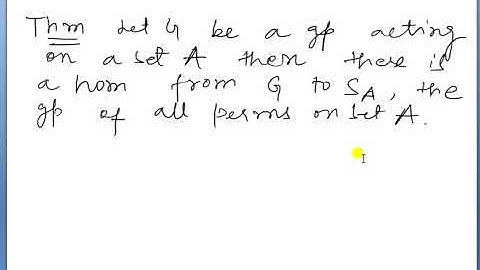 Thm Let G be a gp acting
on a set A then there is
a hom from G to S_A, the
gp of all perms on set A.